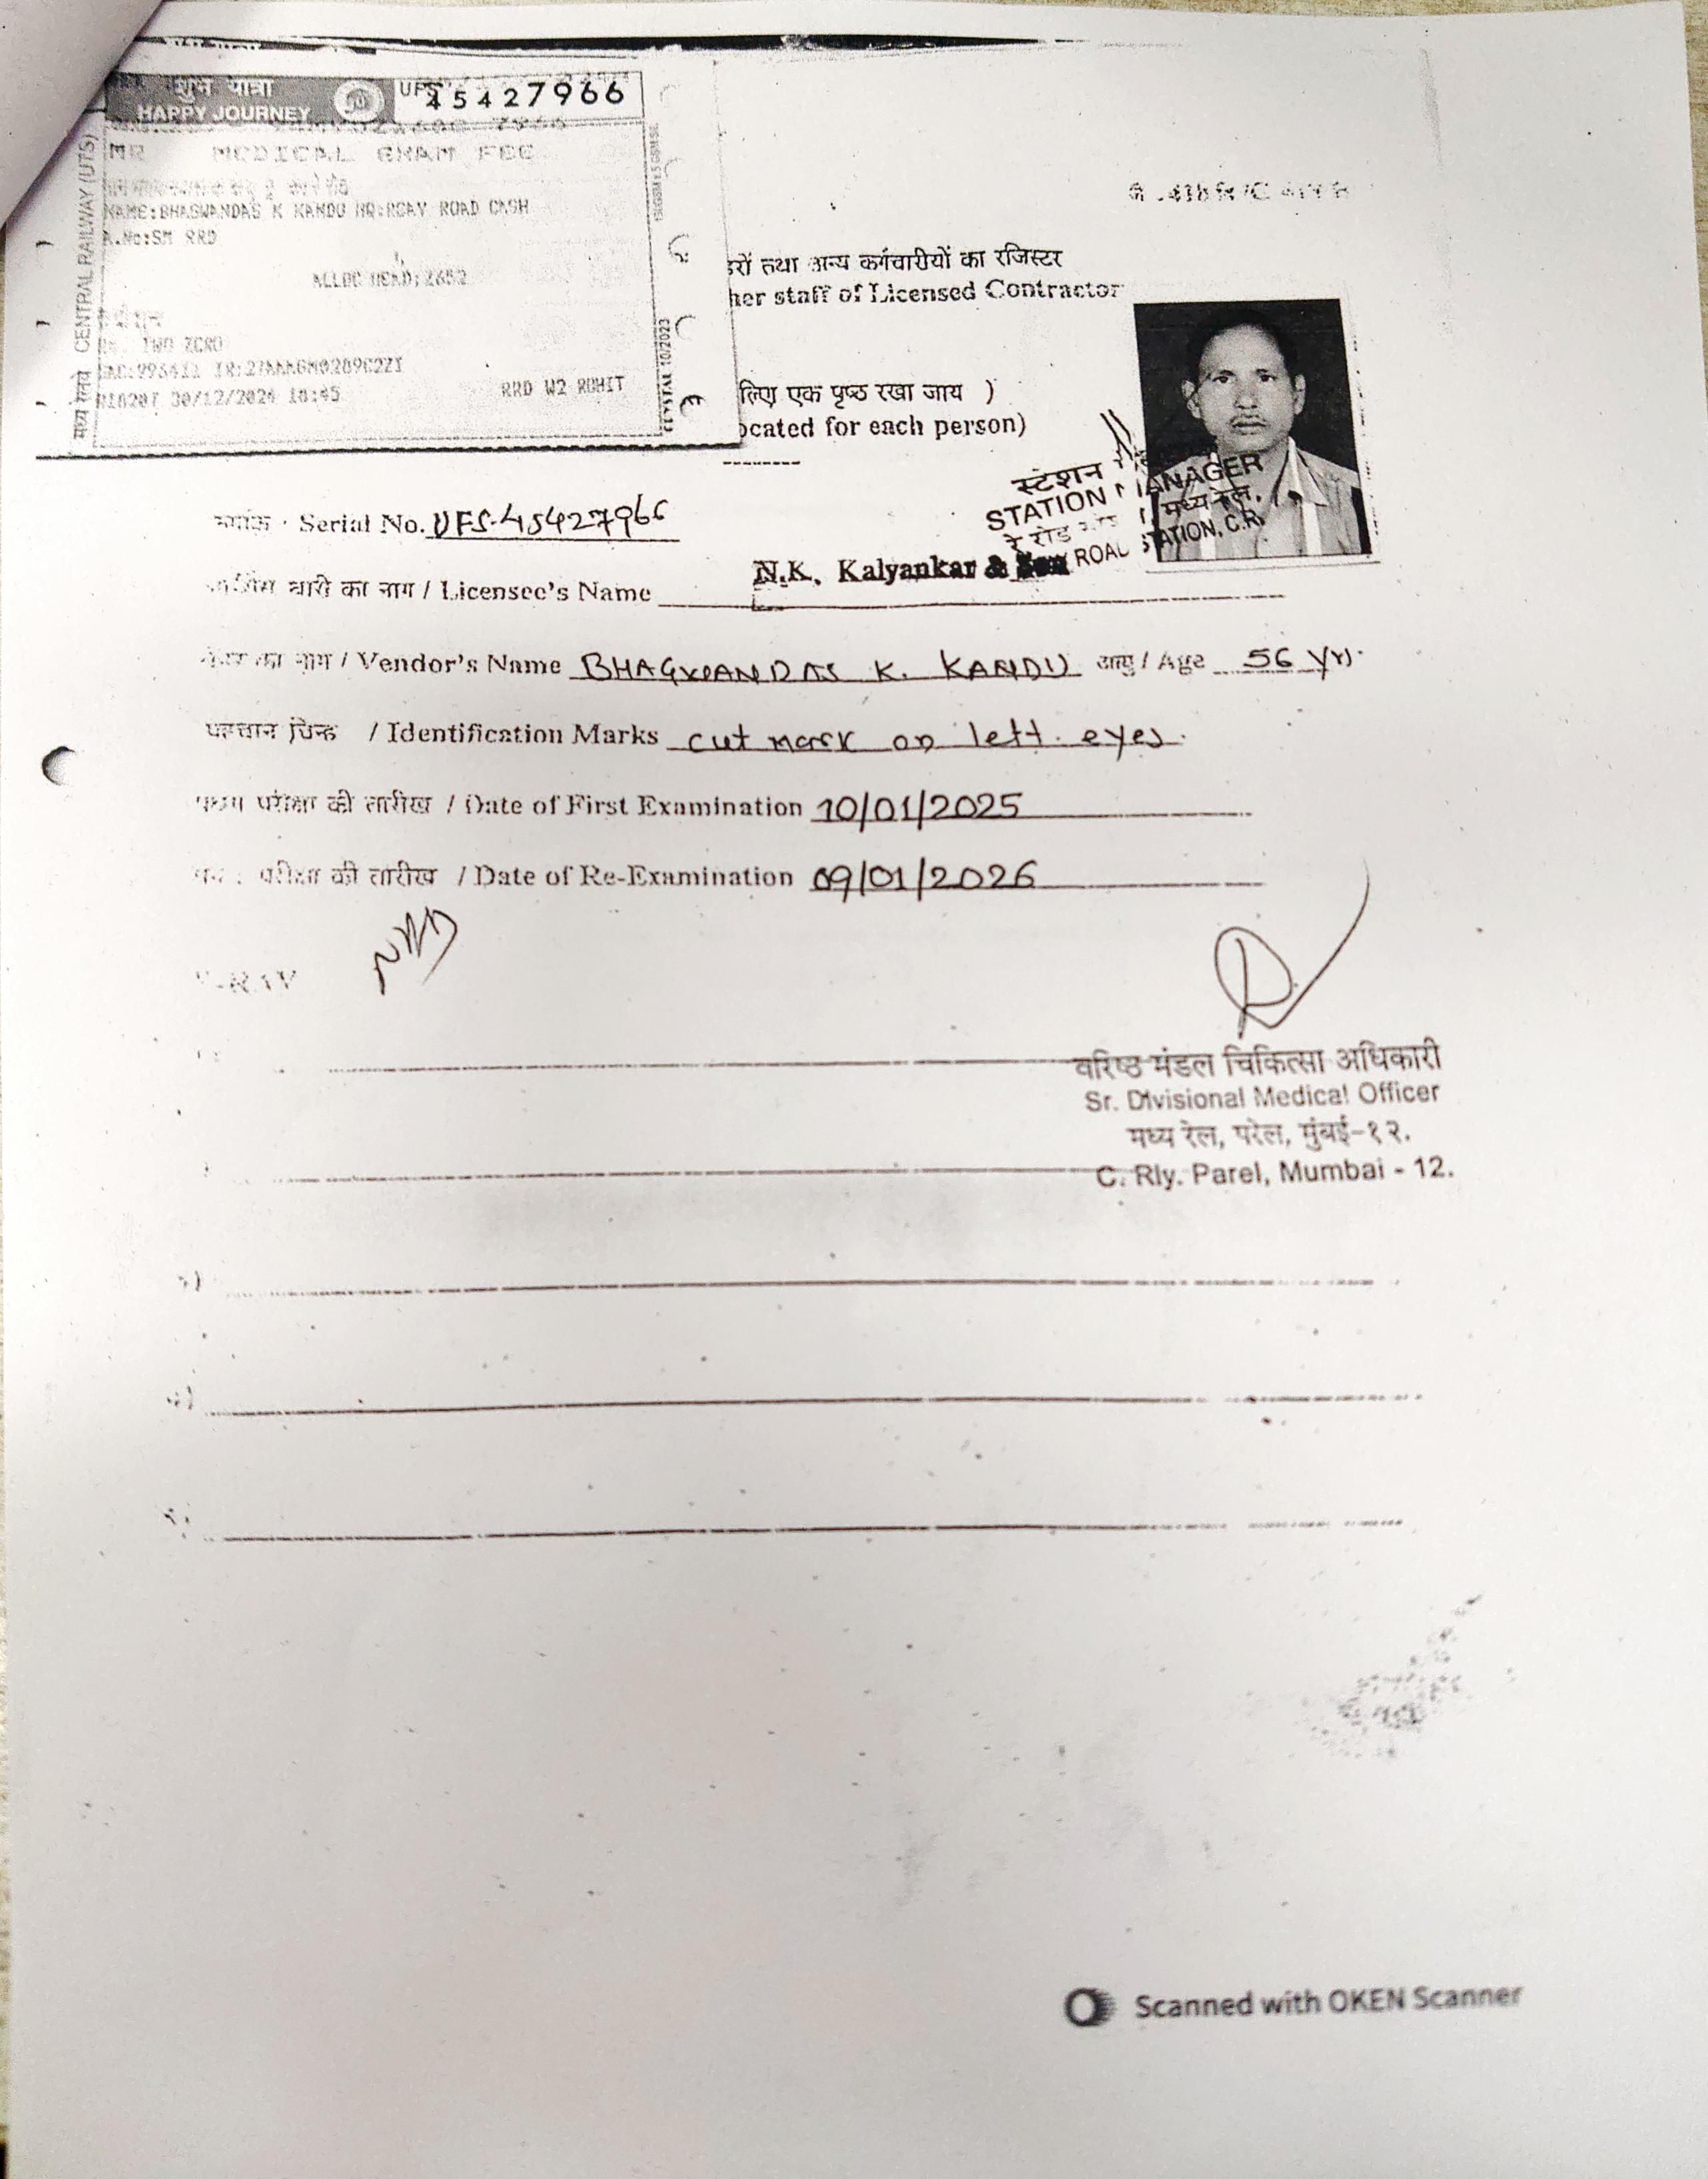 शुभ यात्रा
HAPPY JOURNEY
UFS 45427966
मध्य रेलवे CENTRAL RAILWAY (UTS)
MR MEDICAL EXAM FEE
NAME:BHAGWANDAS K KANDU HQ:REAY ROAD CASH
A.No:SM RRD
ALLOC HEAD:
TWO ZERO
30/12/2024 RRD W2 ROHIT
10/2023
तथा अन्य कर्मचारीयों का रजिस्टर
her staff of Licensed Contractor
लिए एक पृष्ठ रखा जाय )
ocated for each person)
स्टेशन
STATION MANAGER
रे रोड मध्य रेल,
ROAD STATION, C.R.
Serial No. UFS-45427966
धारी का नाम / Licensee's Name N.K. Kalyankar & Son
का नाम / Vendor's Name BHAGWANDAS K. KANDU आयु / Age 56 yrs.
पहचान चिन्ह / Identification Marks cut mark on left eyes.
परीक्षा की तारीख / Date of First Examination 10/01/2025
परीक्षा की तारीख / Date of Re-Examination 09/01/2026
वरिष्ठ मंडल चिकित्सा अधिकारी
Sr. Divisional Medical Officer
मध्य रेल, परेल, मुंबई-१२.
C. Rly. Parel, Mumbai - 12.
Scanned with OKEN Scanner